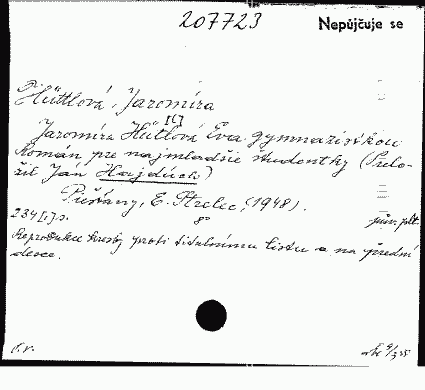 207723 Nepůjčuje se
Hüttlová, Jaromíra
[t]
Jaromíra Hütlová Eva gymnazistkou
Román pre najmladšie študentky (Prelo-
žil Ján Hajdúch)
Piešťany, E. Strelec, (1948).
234 [1] s. 8° pův. plt.
Reprodukce kresby proti titulnímu listu a na přední
desce.